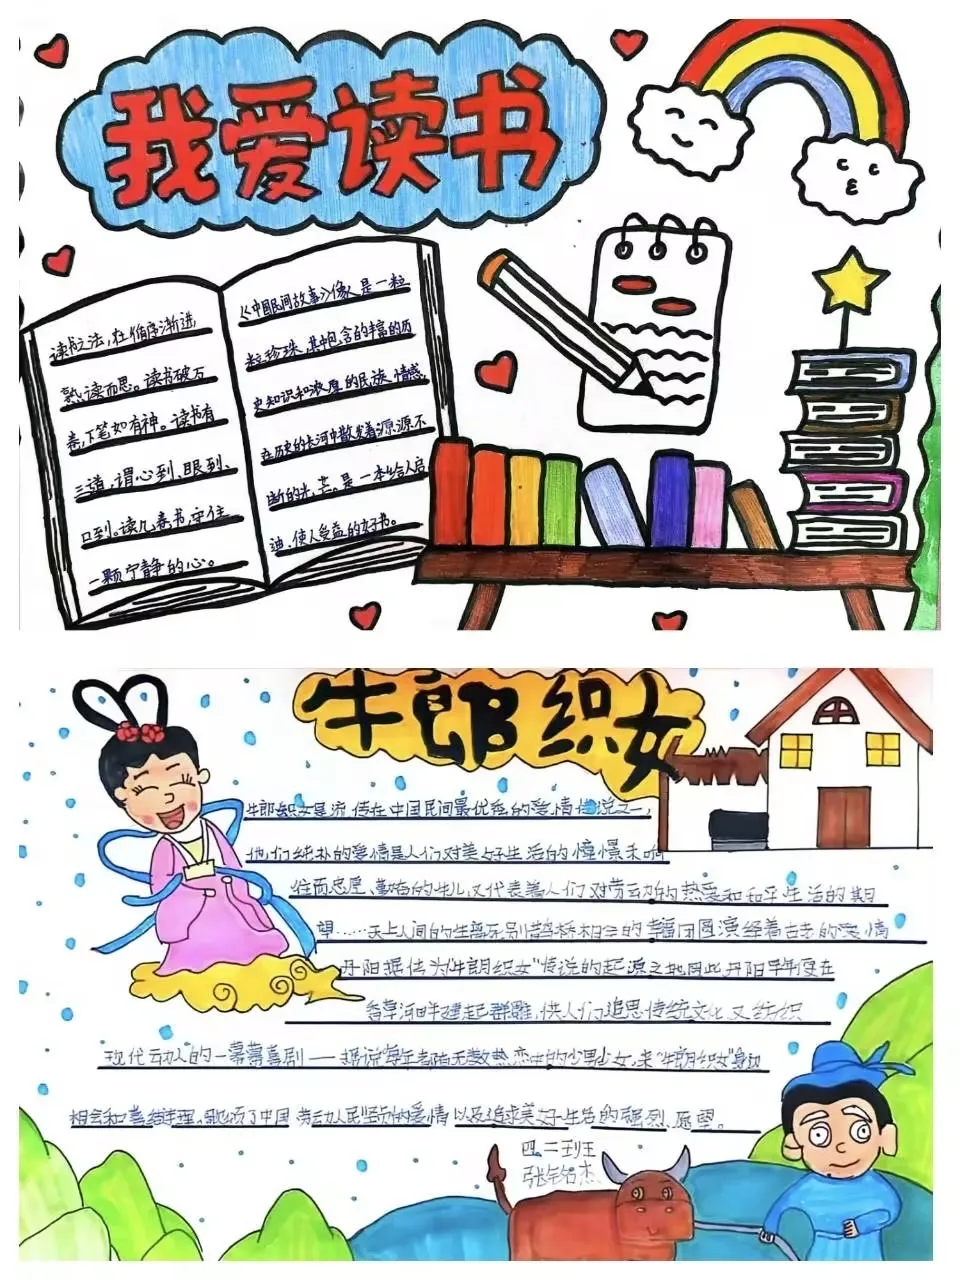 我爱读书
读书之法,在循序渐进,
熟读而思。读书破万
卷,下笔如有神。读书有
三道,谓心到、眼到、
口到。读几卷书,守住
一颗宁静的心。
《中国民间故事》像是一粒
粒珍珠,其中包含的丰富的历
史知识和浓厚的民族情感,
在历史的长河中散发着源源不
断的光芒,是一本给人启
迪,使人受益的好书。
牛郎织女
牛郎织女是流传在中国民间最优秀的爱情传说之一,
他们纯朴的爱情是人们对美好生活的憧憬和向
往而忠厚、勤恳的牛儿又代表着人们对劳动的热爱和和平生活的期
望……天上人间的生离死别鹊桥相会的幸福团圆演绎着古老的爱情
丹阳据传为"牛郎织女"传说的起源之地因此丹阳早年便在
河畔建起群雕,供人们追思传统文化又纺织
现代动人的一幕幕喜剧——据说每年都有无数热恋中的少男少女,来"牛郎织女"身边
相会和喜结连理,歌颂了中国劳动人民坚贞的爱情以及追求美好生活的强烈愿望。
四、二班王
张铭杰